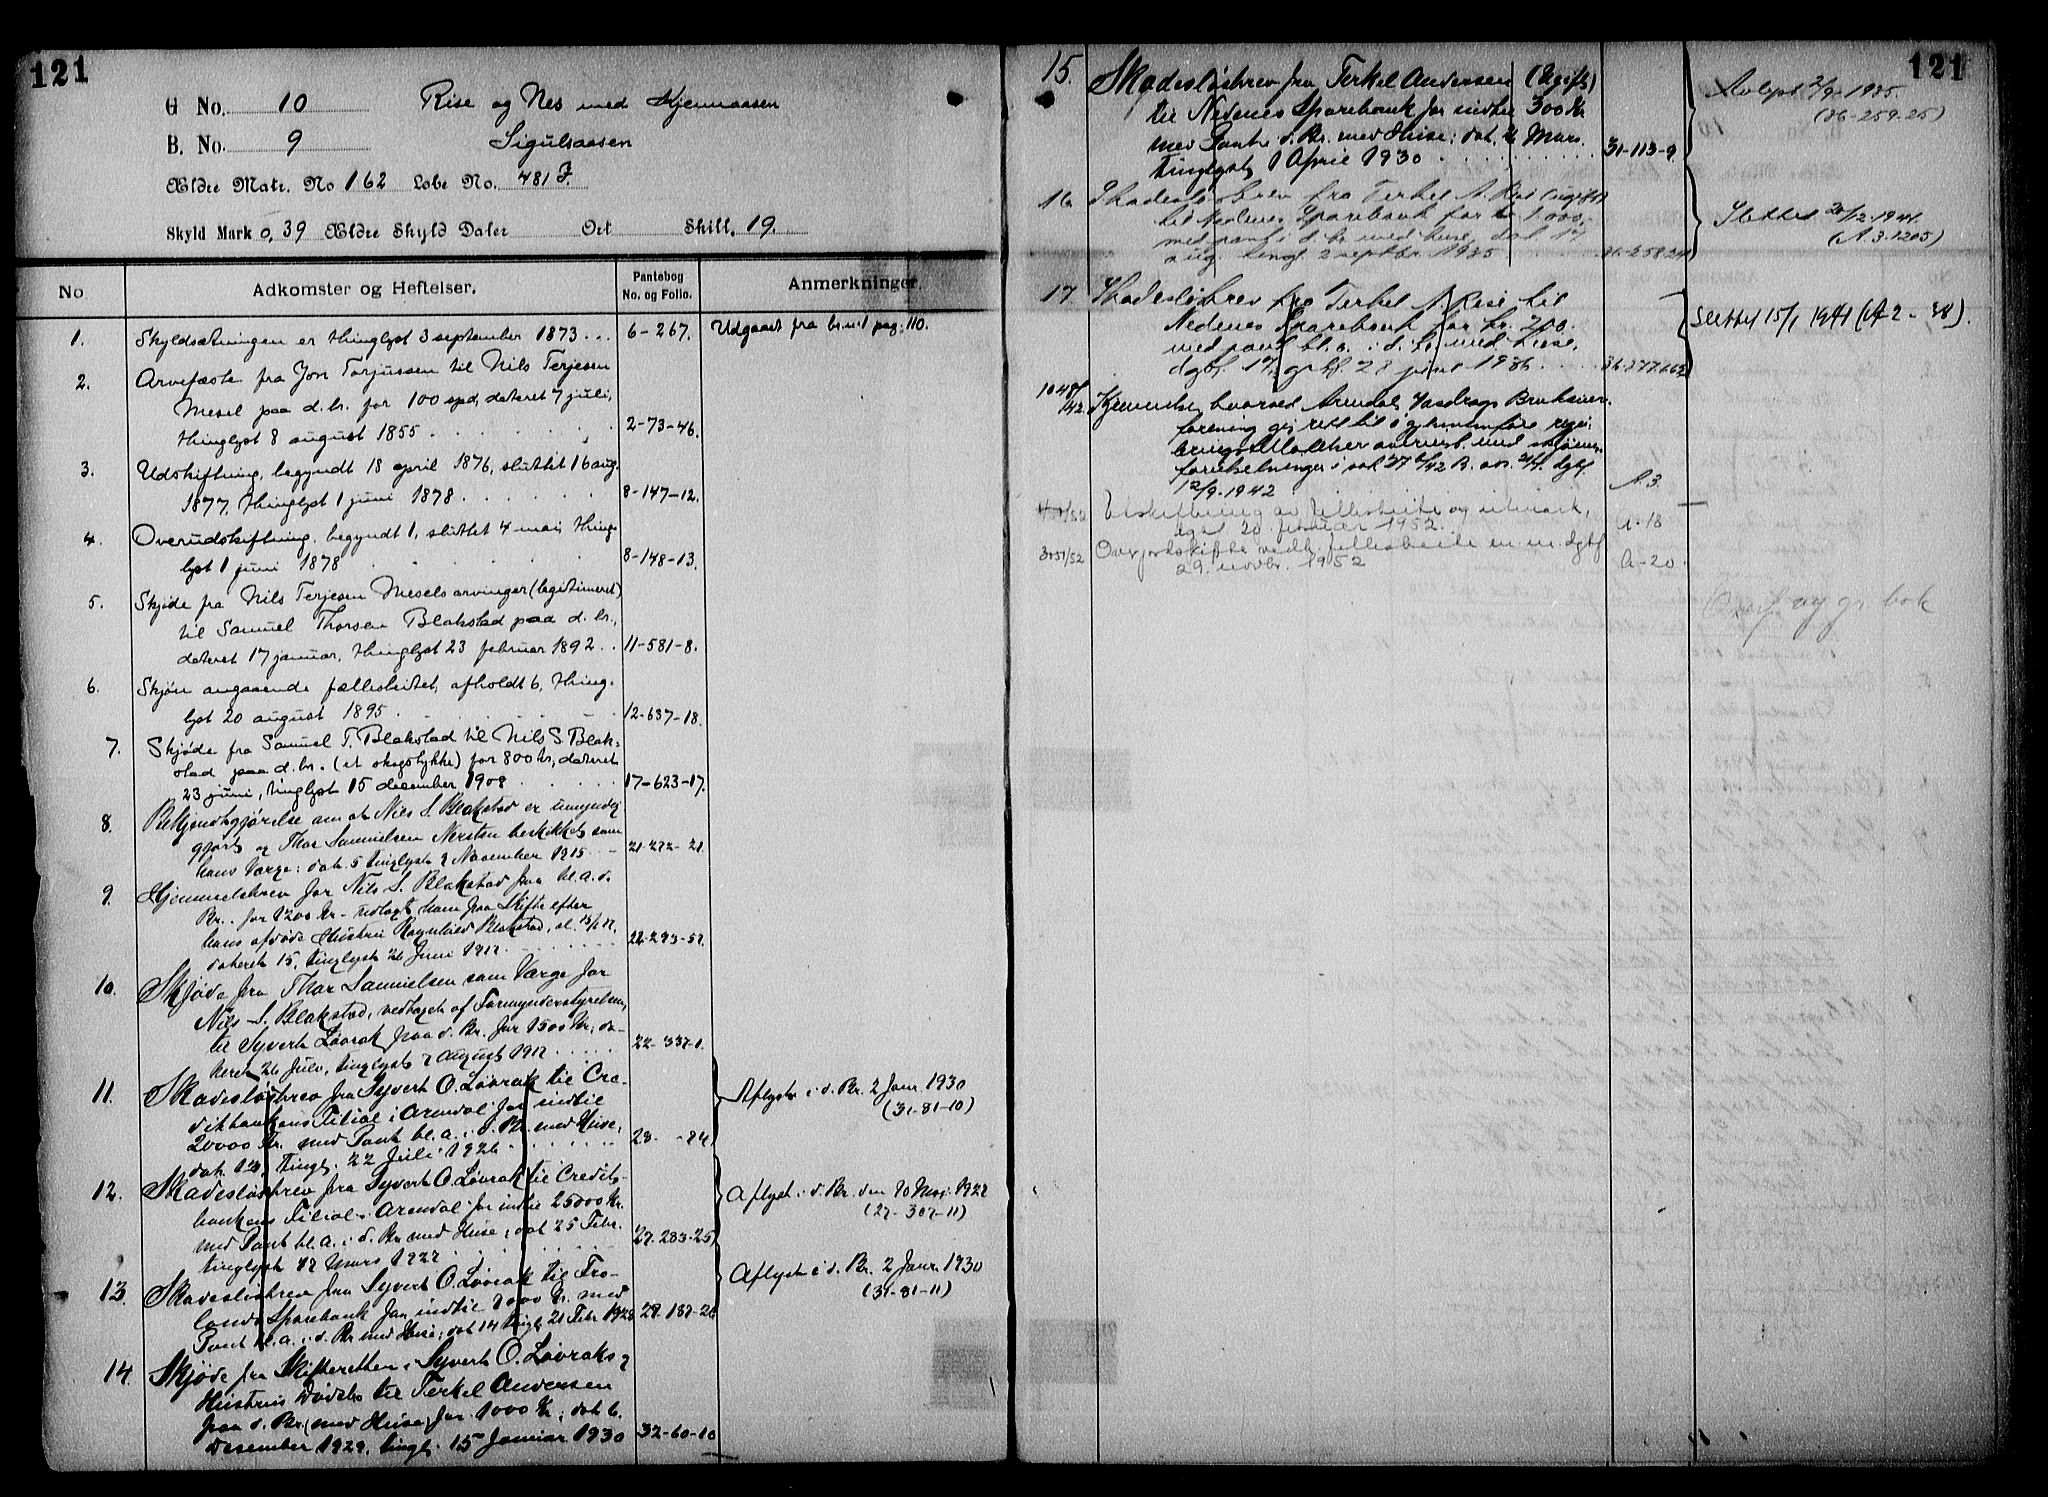 121
G No. 10 Rise og Nes med Kjennaasen
B. No. 9 Sigulsaasen
Ældre Matr. No 162 Løbe No. 481 J.
Skyld Mark 0,39 Ældre Skyld Daler Ort Skill. 19.
No. Adkomster og Heftelser. Pantebog No. og Folio. Anmerkninger.
1. Skyldsætningen er thinglyst 3 september 1873 . . . 6-267. Udgaaet fra br.nr 1 pag. 110.
2. Arvefæste fra Jon Torjussen til Nils Terjesen
Mesel paa d. br. for 100 spd, dateret 7 juli,
thinglyst 8 august 1855 . . . 2-73-46.
3. Udskiftning, begyndt 18 april 1876, sluttet 16 aug.
1877, thinglyst 1 juni 1878 . . . 8-147-12.
4. Overudskiftning, begyndt 1, sluttet 4 mai, thing-
lyst 1 juni 1878 . . . 8-148-13.
5. Skjøde fra Nils Terjesen Mesels arvinger (legitimeret)
til Samuel Thorsen Blakstad paa d. br.,
dateret 17 januar, thinglyst 23 februar 1892 . . 11-581-8.
6. Skjøn angaaende fællesbeitet, afholdt 6, thing-
lyst 20 august 1895 . . . 12-637-18.
7. Skjøde fra Samuel T. Blakstad til Nils S. Blak-
stad paa d. br. (et skogstykke) for 800 kr, dateret
23 juni, tinglyst 15 desember 1908 . . . 17-623-17.
8. Bekjendtgjørelse om at Nils S. Blakstad er umyndig
gjort og Thor Samuelsen Nersten beskikket som
hans Værge: dat. 5 tinglyst 9 November 1915 . . 21-272-21.
9. Hjemmelsbrev for Nils S. Blakstad paa bl. a. d.
Br. for 1200 Kr - udlagt ham paa Skifte efter
hans afdøde Hustru Ragnhild Blakstad,
dateret 15, tinglyst 26 Juni 1917 . . . 22-293-57.
10. Skjøde fra Thor Samuelsen som Værge for
Nils S. Blakstad, vedtaget af Formynderstyrelsen,
til Syvert Løvrak paa d. Br. for 1500 Kr; da-
teret 26 Juli, tinglyst 7 August 1917 . . . 22-337-1.
11. Skadesløsbrev fra Syvert O. Løvrak til Cre-
ditbankens Filial i Arendal for indtil
20000 Kr. med Pant bl. a. i d. Br. med Huse,
dat. 12, tingl. 22 Juli 1926 . . .
Aflyst i d. Br. 2 Janr. 1930
(31-81-10)
12. Skadesløsbrev fra Syvert O. Løvrak til Credit-
bankens Filial i Arendal for indtil 25000 Kr.
med Pant bl. a. i d. Br. med Huse; dat 25 Febr.
tinglyst 17 Mars 1927 . . . 27-283-25
Aflyst i d. Br. den 10 Maj 1927
(27-307-11)
13. Skadesløsbrev fra Syvert O. Løvrak til Fro-
lands Sparebank for indtil 7000 Kr. med
Pant bl. a. i d. Br med Huse; dat 14 tingl. 21 Febr 1928 . 28-187-26
Aflyst i d. Br. 2 Janr. 1930
(31-81-11)
14. Skjøde fra Skifteretten i Syvert O. Løvraks &
Hustrus Dødsbo til Terkel Andersen
paa d. Br. (med Huse) for 1000 Kr; dat 6.
Desember 1929, tingl. 15 Januar 1930 32-60-10
121
15. Skadesløsbrev fra Terkel Andersen (Ugift)
til Nedenes Sparebank for indtil 300 Kr
med Pant i d. Br. med Huse; dat. 26 Mars.
tinglyst 1 April 1930 . . . 31-113-9.
Avlyst 2/9-1935
(36-259-25)
16. Skadesløsbrev fra Terkel A. Rise (ugift)
til Nedenes Sparebank for kr 1000,-
med pant i d. br. med huse, dat 17
aug. tingl 2 septbr. 1935 . . . 36-258-24
Slettet 20/12-1941
(A.3.1205)
17. Skadesløsbrev fra Terkel A. Rise til
Nedenes Sparebank for kr. 200.
med pant bl. a. i d. br. med huse,
dgbf. 28 juni 1936 . . .
Slettet 15/1 1941 (A2-38).
1048/42 Kjennelse hvorved Arendals Vasdrags Brukseier-
forening gis rett til å gjennemføre regu-
leringstiltakene overenst. med skjønns-
forutsetninger i sak 27 b/42 B. dgbf.
12/9-1942 A.3.
Utskiftning av fellesbeite og utmark,
dgbf 20. februar 1952. A-18
3051/52 Overjordskifte vedk. fellesbeite m. m. dgbf
29. novbr. 1952 A-20.
Overf. ny gr. bok